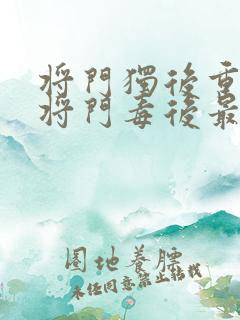 將門獨後重
將門毒後最
圈地養膘
未任同意禁止轉載